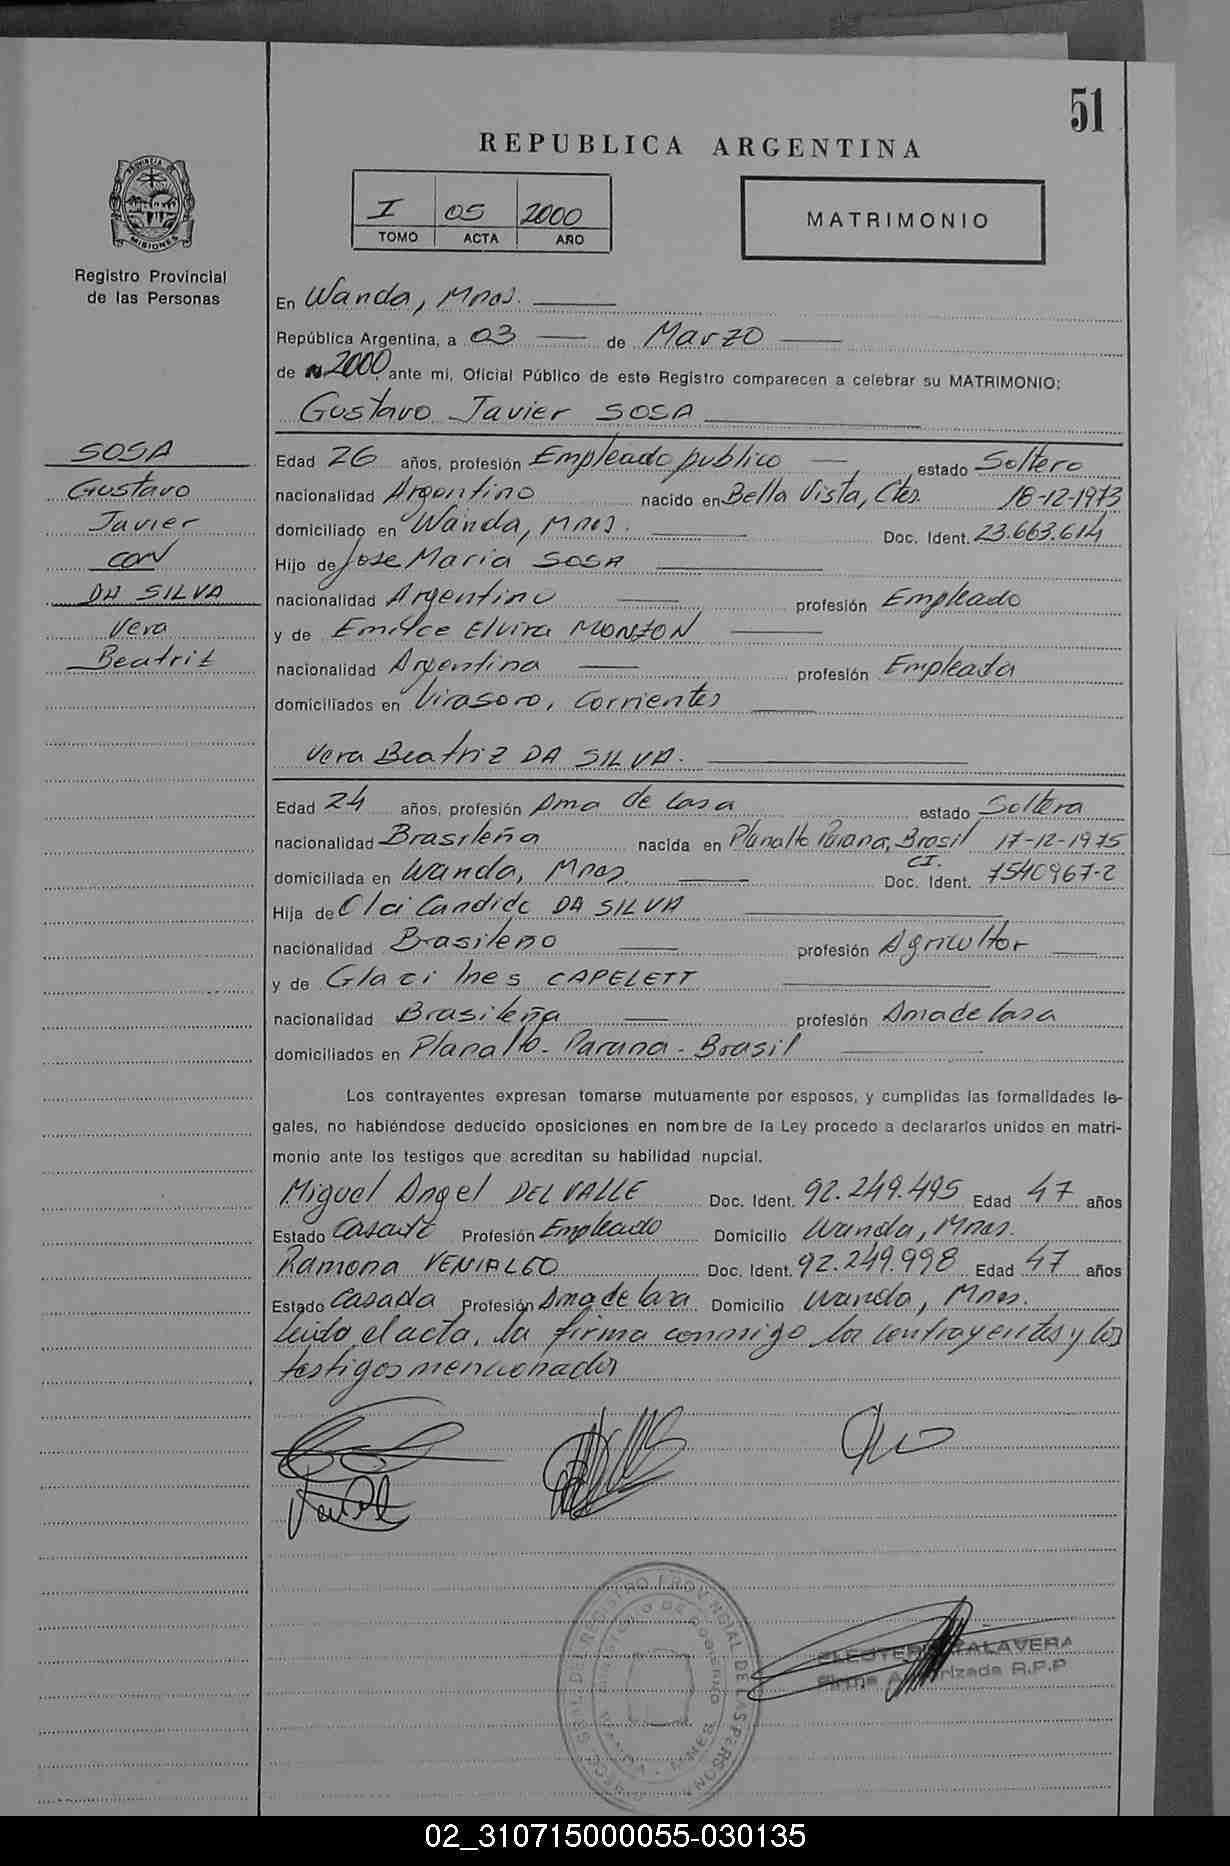 51
REPUBLICA ARGENTINA
I 05 2000
TOMO ACTA AÑO
MATRIMONIO
PROVINCIA DE
MISIONES
Registro Provincial
de las Personas
En Wanda, Mnes.
República Argentina, a 03 de Marzo
de 2000, ante mi, Oficial Público de este Registro comparecen a celebrar su MATRIMONIO:
Gustavo Javier SOSA
SOSA
Gustavo
Javier
CON
DA SILVA
Vera
Beatriz
Edad 26 años, profesión Empleado publico estado Soltero
nacionalidad Argentino nacido en Bella Vista, Ctes. 18-12-1973
domiciliado en Wanda, Mnes. Doc. Ident. 23.663.614
Hijo de Jose Maria SOSA
nacionalidad Argentino profesión Empleado
y de Emilce Elvira MONZON
nacionalidad Argentina profesión Empleada
domiciliados en Virasoro, Corrientes
Vera Beatriz DA SILVA.
Edad 24 años, profesión Ama de Casa estado Soltera
nacionalidad Brasileña nacida en Planalto Parana, Brasil 17-12-1975
domiciliada en Wanda, Mnes. Doc. Ident. CI. 7540967-2
Hija de Olci Candido DA SILVA
nacionalidad Brasileño profesión Agricultor
y de Glaci Ines CAPELETT
nacionalidad Brasileña profesión Ama de Casa
domiciliados en Planalto - Parana - Brasil
Los contrayentes expresan tomarse mutuamente por esposos, y cumplidas las formalidades le-
gales, no habiéndose deducido oposiciones en nombre de la Ley procedo a declararlos unidos en matri-
monio ante los testigos que acreditan su habilidad nupcial.
Miguel Angel DEL VALLE Doc. Ident. 92.249.495 Edad 47 años
Estado Casado Profesión Empleado Domicilio Wanda, Mnes.
Ramona VENIALGO Doc. Ident. 92.249.998 Edad 47 años
Estado Casada Profesión Ama de Casa Domicilio Wanda, Mnes.
Leida el acta, la firma conmigo los contrayentes y los
testigos mencionados
REGISTRO PROVINCIAL DE LAS PERSONAS
MINISTERIO DE GOBIERNO
WANDA - MNES
TALAVERA
Firma Autorizada R.P.P
02_310715000055-030135